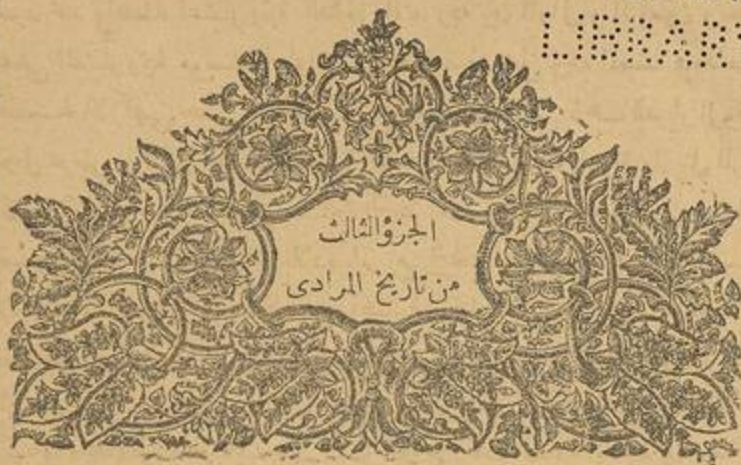 LIBRARY
الجزؤ الثالث
من تاريخ المرادى